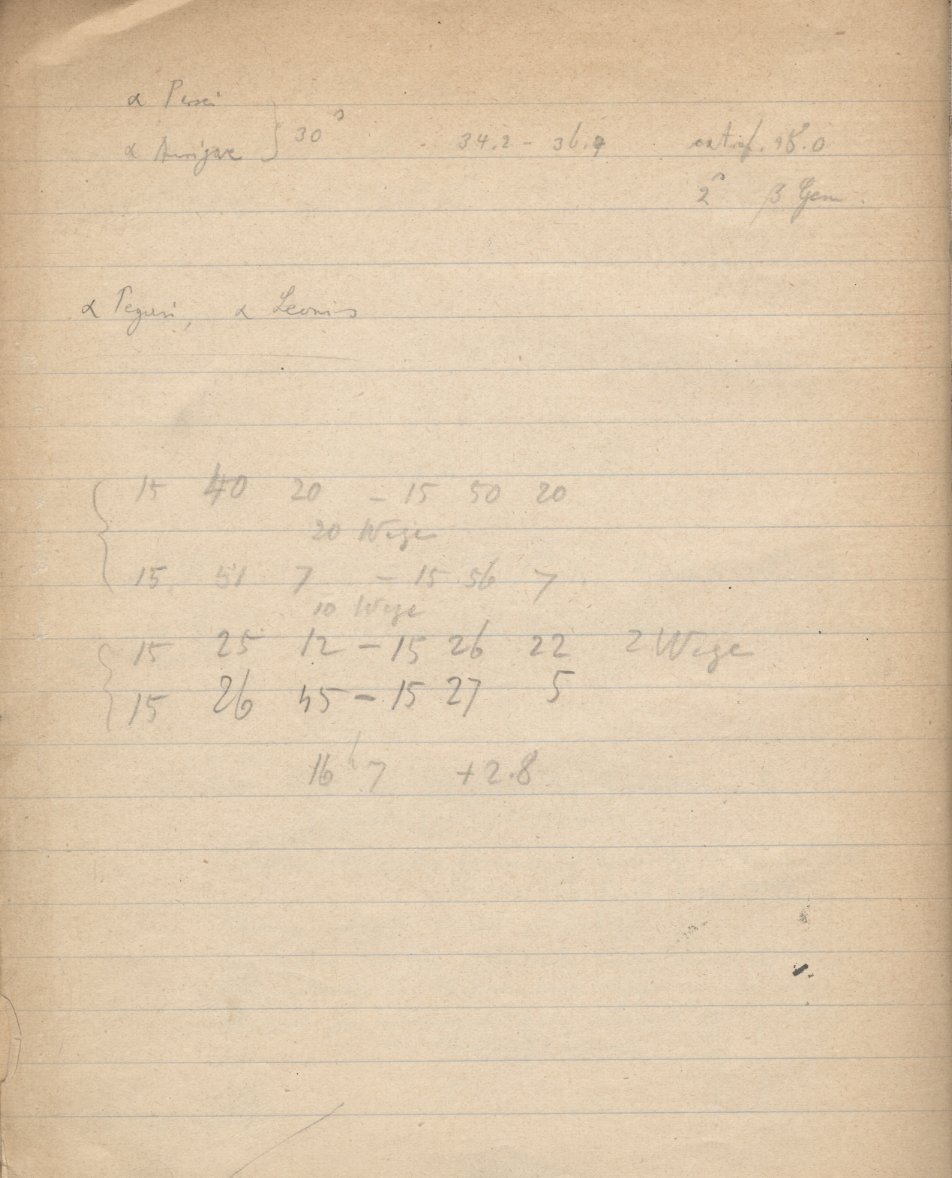 α Persei
α Aurigae } 30ˢ 34.2 - 36.9 18.0
2ˢ β Gem.
α Pegasi, α Leonis
15 40 20 - 15 50 20
20 Wege
15 51 7 - 15 56 7
10 Wege
15 25 12 - 15 26 22 2 Wege
15 26 45 - 15 27 5
16ʰ 7 +2.8